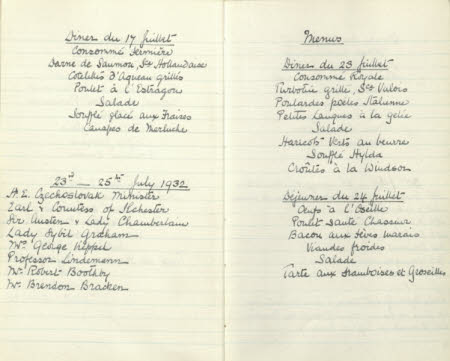 Diner du 17 Juillet
Consommé Dernière
Darne de Saumon, Sce Hollandaise
Cotelettes d'Agneau grillés
Poulet à l'Estragon
Salade
Soufflé glacé aux Fraises
Canapes de Merluche
23rd — 25th July 1932
H. E. Czechoslovak Minister
Earl & Countess of Ilchester
Sir Austen & Lady Chamberlain
Lady Sybil Graham
Mrs George Keppel
Professor Lindemann
Mr Robert Boothby
Mr Brendon Bracken
Menus
Diner du 23 Juillet
Consommé Royale
Turbotin grillé, Sce Valois
Poulardes poeles Italienne
Petites Langues à la gelée
Salade
Haricots Verts au beurre
Soufflé Hylda
Croûtes à la Windsor
Déjeuner du 24 Juillet
Oeufs à l'Oseille
Poulet Sauté Chasseur
Bacon aux fèves marais
Viandes froides
Salade
Tarte aux Framboises et Groseilles